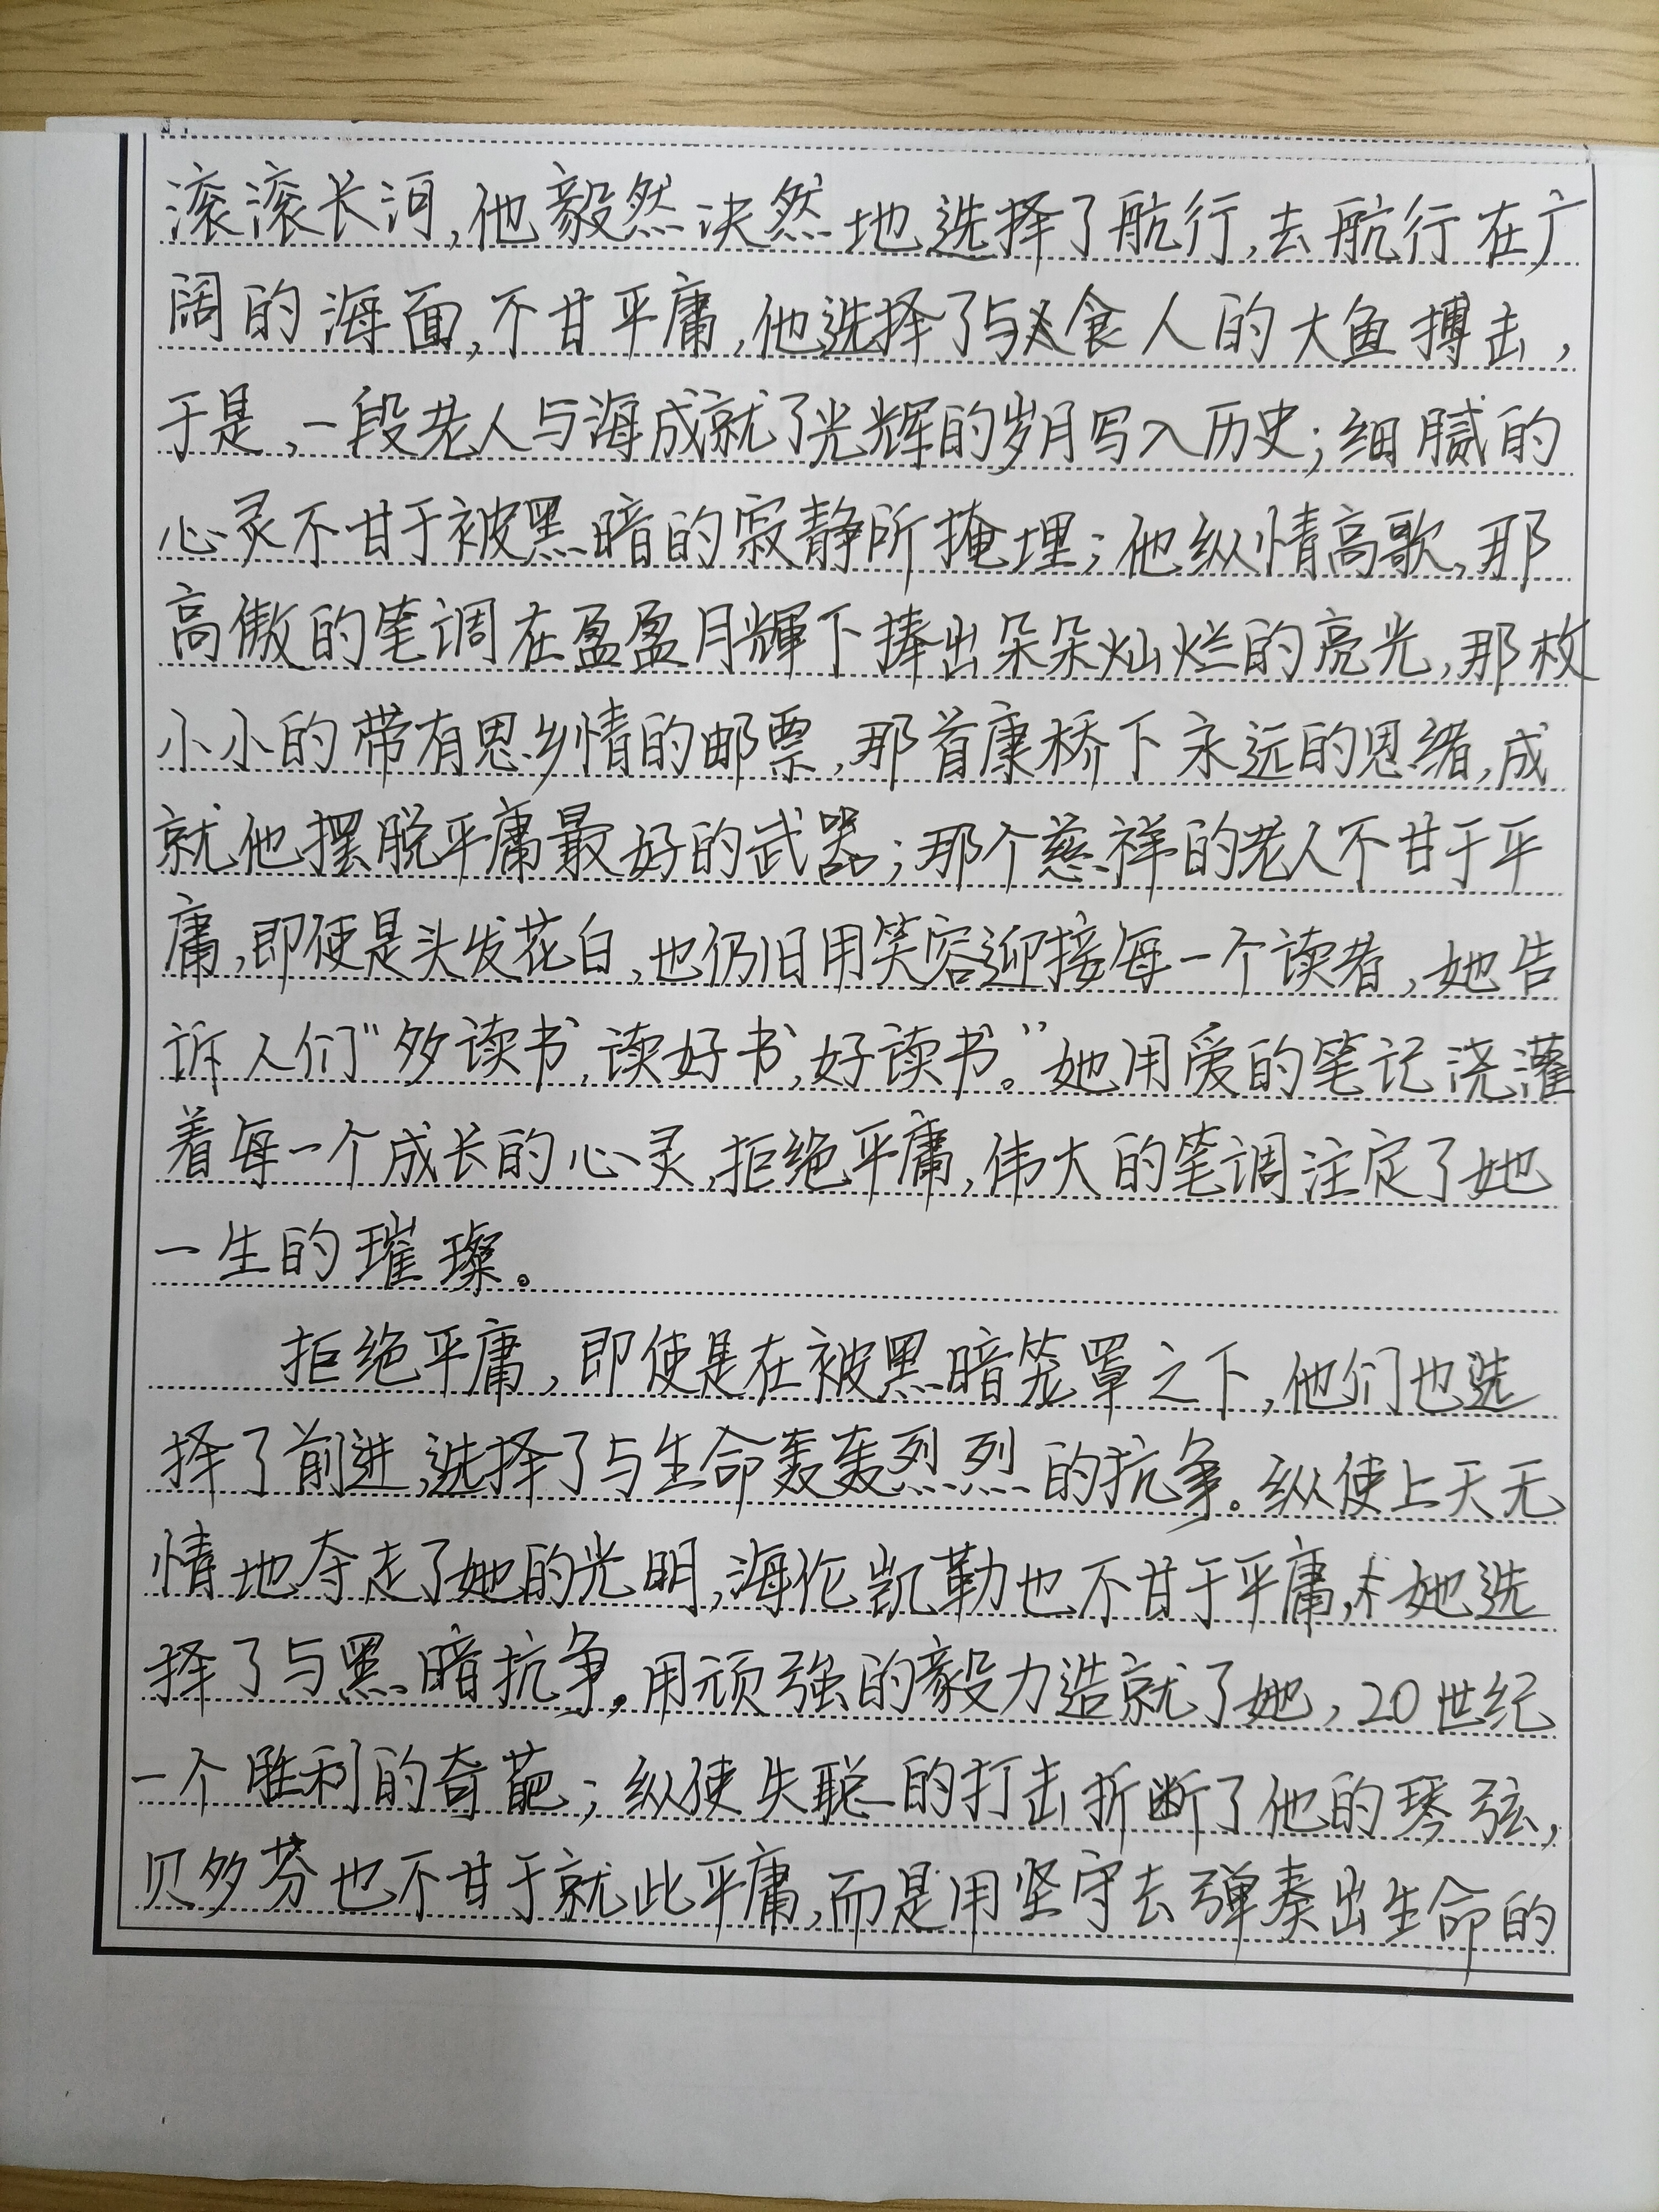 滚滚长河,他毅然决然地选择了航行,去航行在广
阔的海面,不甘平庸,他选择了与食人的大鱼搏击,
于是,一段老人与海成就了光辉的岁月写入历史;细腻的
心灵不甘于被黑暗的寂静所掩埋;他纵情高歌,那
高傲的笔调在盈盈月辉下捧出朵朵灿烂的亮光,那枚
小小的带有思乡情的邮票,那首康桥下永远的思绪,成
就他摆脱平庸最好的武器;那个慈祥的老人不甘于平
庸,即使是头发花白,也仍旧用笑容迎接每一个读者,她告
诉人们“多读书,读好书,好读书。”她用爱的笔记浇灌
着每一个成长的心灵,拒绝平庸,伟大的笔调注定了她
一生的璀璨。
拒绝平庸,即使是在被黑暗笼罩之下,他们也选
择了前进,选择了与生命轰轰烈烈的抗争。纵使上天无
情地夺走了她的光明,海伦凯勒也不甘于平庸,她选
择了与黑暗抗争。用顽强的毅力造就了她,20世纪
一个胜利的奇葩;纵使失聪的打击折断了他的琴弦,
贝多芬也不甘于就此平庸,而是用坚守去弹奏出生命的